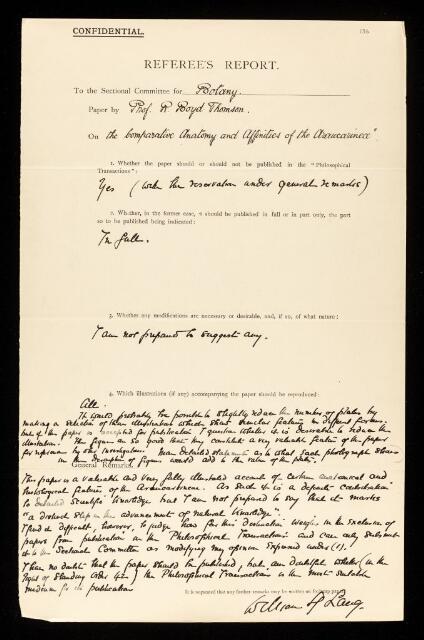 CONFIDENTIAL.
136
REFEREE'S REPORT.
To the Sectional Committee for Botany.
Paper by Prof. R Boyd Thomson.
On the Comparative Anatomy and Affinities of the Araucarineæ".
1. Whether the paper should or should not be published in the "Philosophical
Transactions":
Yes (with the reservation under general remarks)
2. Whether, in the former case, it should be published in full or in part only, the part
so to be published being indicated:
In full.
3. Whether any modifications are necessary or desirable, and, if so, of what nature:
I am not prepared to suggest any.
4. Which illustrations (if any) accompanying the paper should be reproduced:
All.
It would probably be possible to slightly reduce the number of plates by
making a selection of those illustrations which show similar features in different forms:
but if the paper is accepted for publication I question whether it is desirable to reduce the
illustrations. The figures are so good that they constitute a very valuable feature of the paper
for reference by other investigators. More detailed statements as to what each photograph shows
in the description of figures would add to the value of the plates.
General Remarks.
The paper is a valuable and very fully illustrated account of certain anatomical and
histological features of the Araucarineae. As such it is a definite contribution
to detailed Scientific knowledge but I am not prepared to say that it marks
"a distinct step in the advancement of natural knowledge".
I find it difficult, however, to judge how far this declaration weighs in the exclusion of
papers from publication in the Philosophical Transactions and can only submit
it to the Sectional Committee as modifying my opinion expressed under (1).
I have no doubt that the paper should be published, but am doubtful whether (in the
light of Standing Order 42) the Philosophical Transactions is the most suitable
medium for its publication
It is requested that any further remarks may be written on
William H Lang.